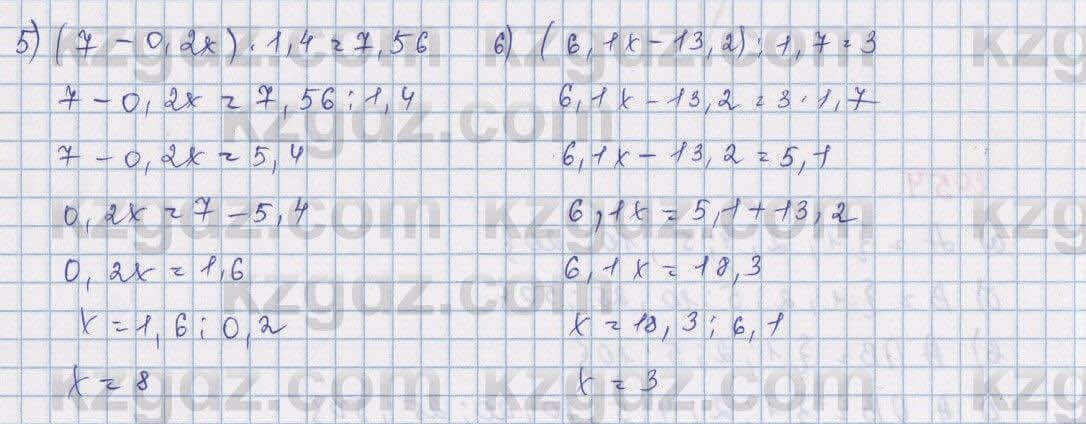 5) (7 - 0,2x) · 1,4 = 7,56
7 - 0,2x = 7,56 : 1,4
7 - 0,2x = 5,4
0,2x = 7 - 5,4
0,2x = 1,6
x = 1,6 : 0,2
x = 8
6) (6,1x - 13,2) : 1,7 = 3
6,1x - 13,2 = 3 · 1,7
6,1x - 13,2 = 5,1
6,1x = 5,1 + 13,2
6,1x = 18,3
x = 18,3 : 6,1
x = 3
kzgdz.com